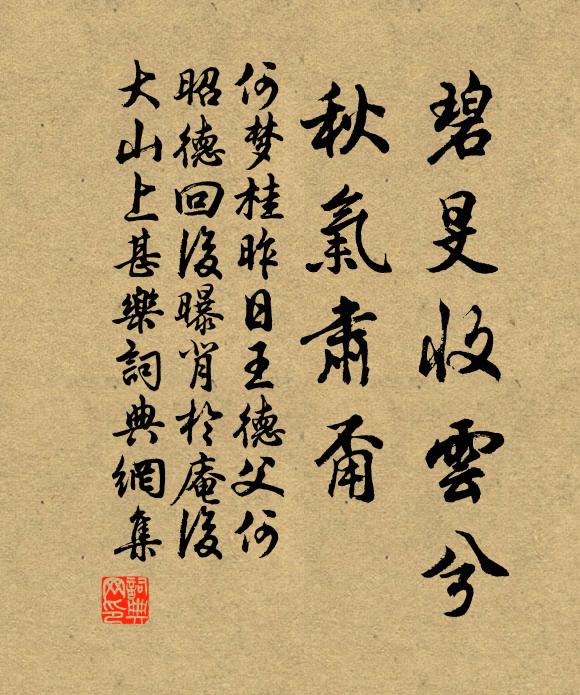 碧旻收雲兮
秋氣肅甭
何梦桂昨日王德父何
昭德回後曝肖於庵後
大山上甚樂詞典網集
詞典网印